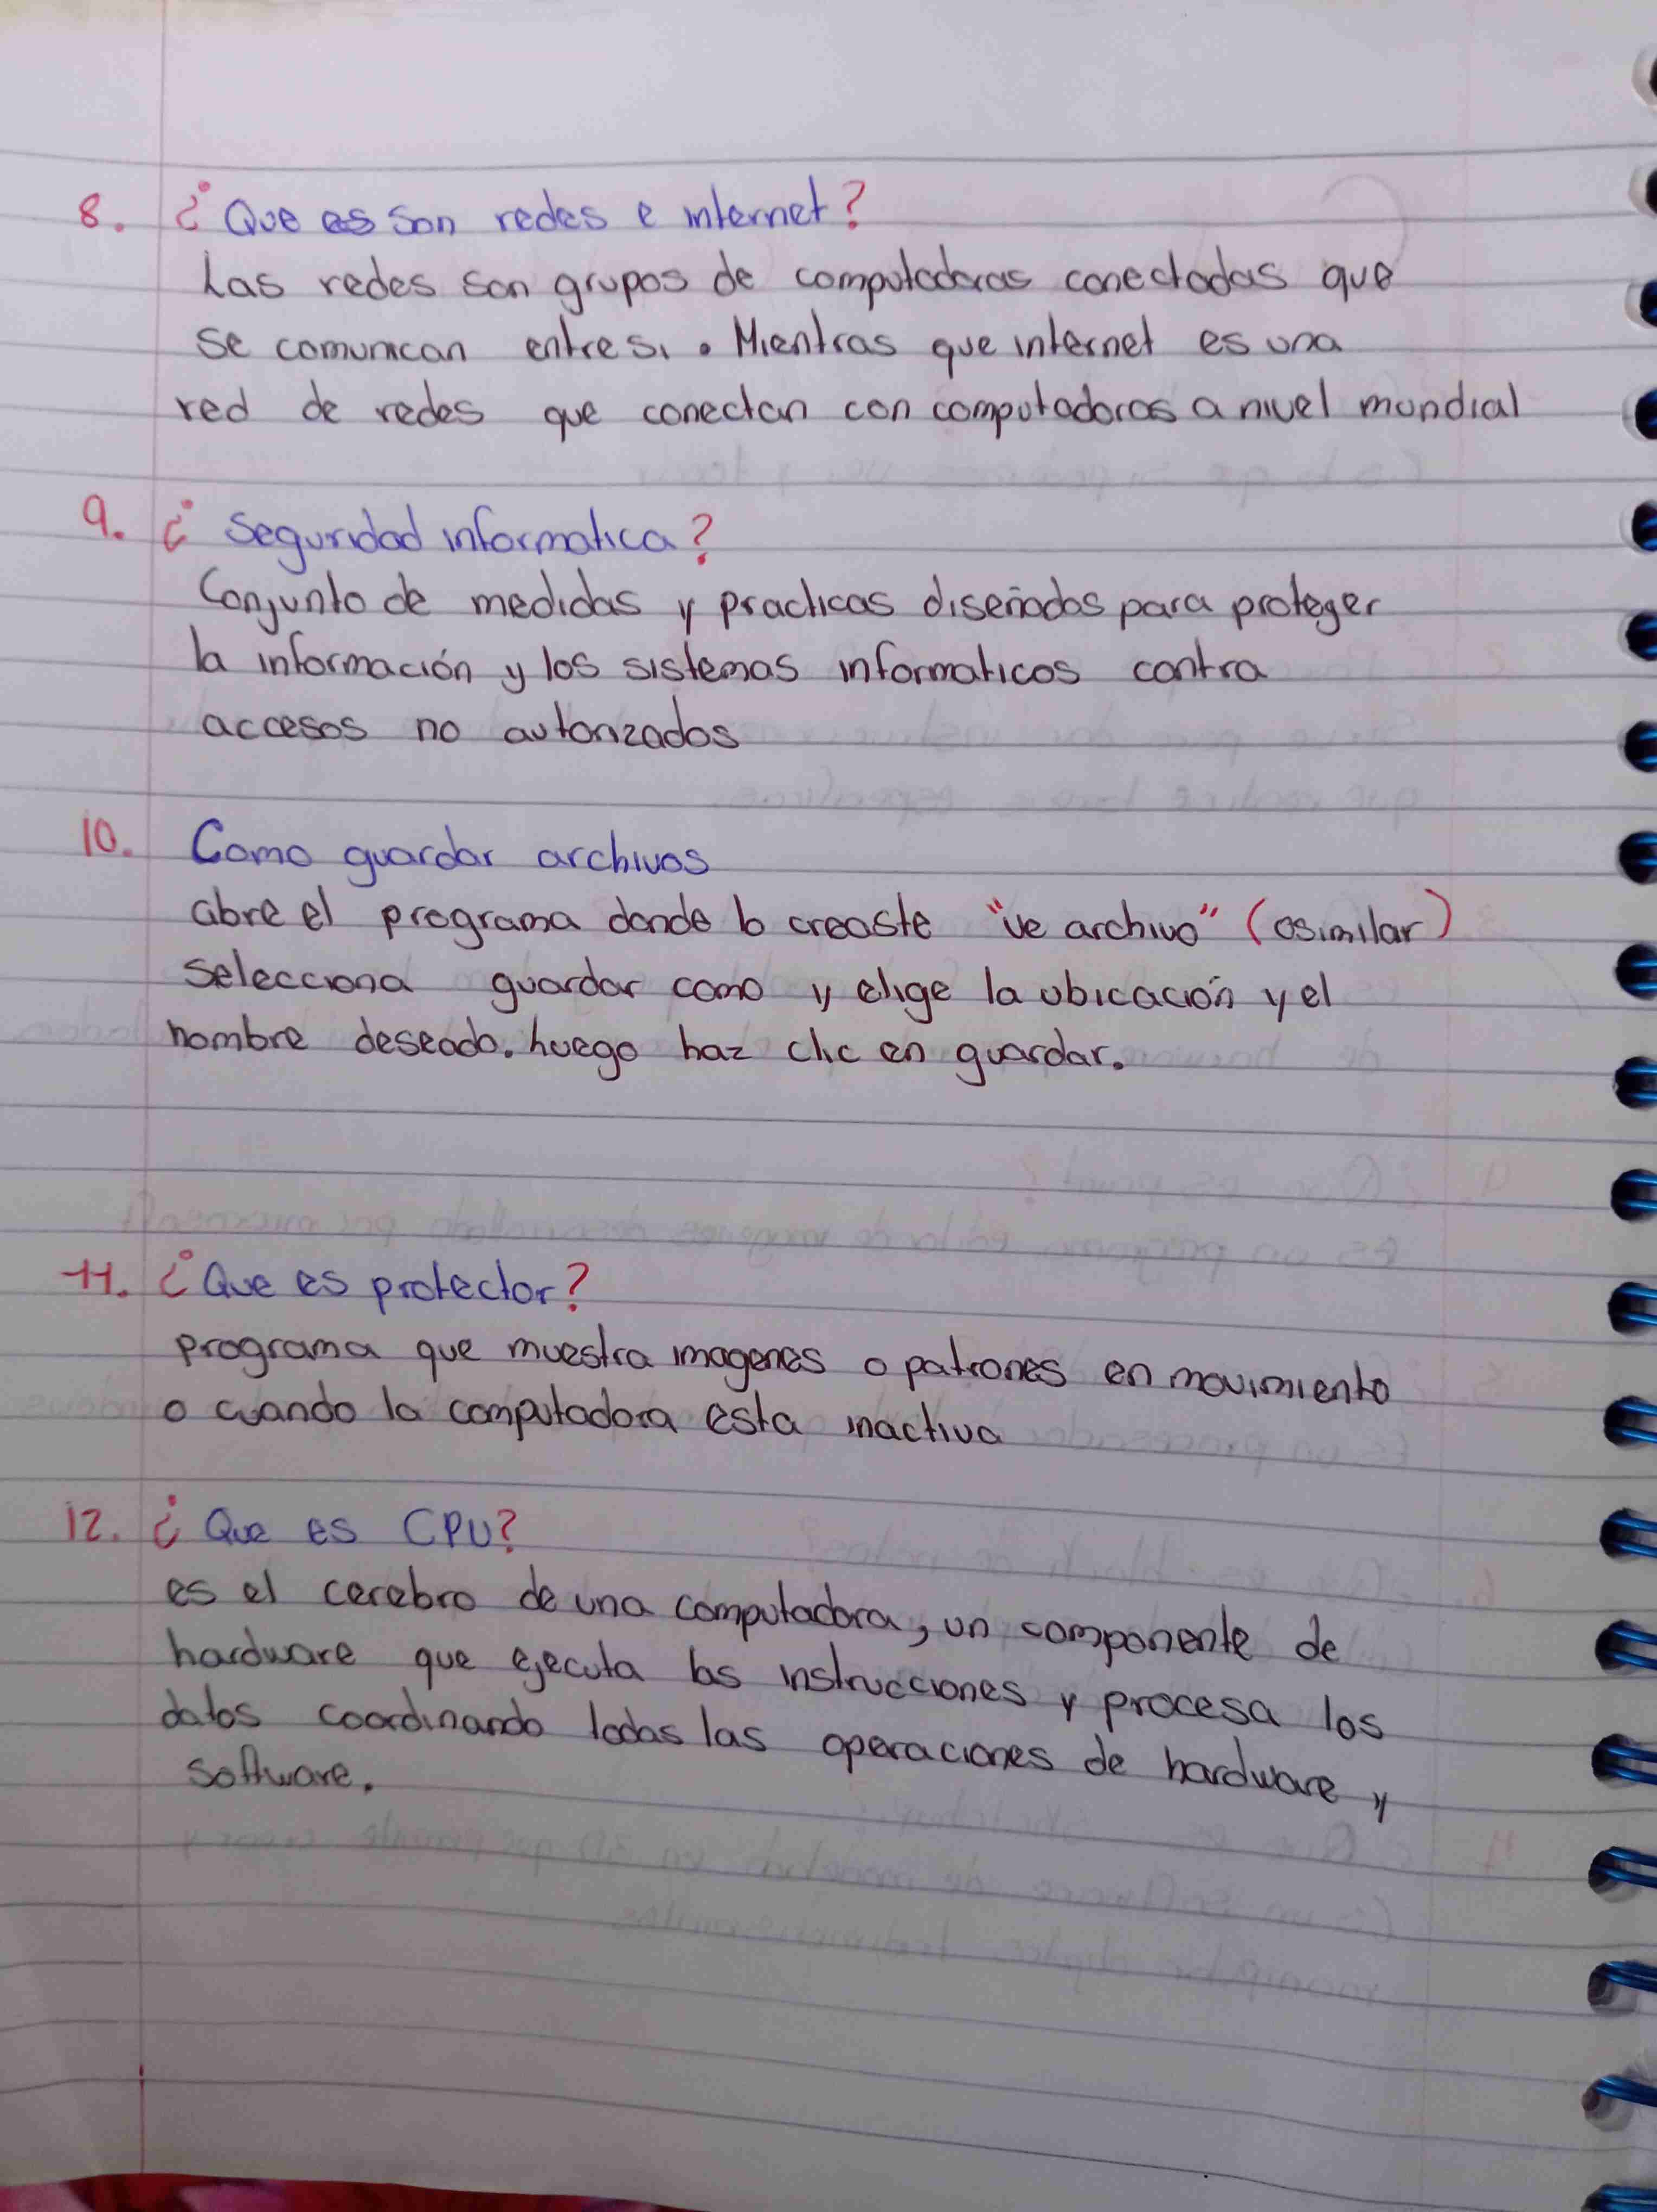 8. ¿Que es son redes e internet?
Las redes son grupos de computadoras conectadas que
se comunican entre si. Mientras que internet es una
red de redes que conectan con computadoras a nivel mundial
9. ¿Seguridad informatica?
Conjunto de medidas y practicas diseñados para proteger
la información y los sistemas informaticos contra
accesos no autorizados
10. Como guardar archivos
abre el programa donde lo creaste "ve archivo" (o similar)
selecciona guardar como y elige la ubicación y el
nombre deseado. Luego haz clic en guardar.
11. ¿Que es protector?
programa que muestra imagenes o patrones en movimiento
o cuando la computadora esta inactiva
12. ¿Que es CPU?
es el cerebro de una computadora, un componente de
hardware que ejecuta las instrucciones y procesa los
datos coordinando todas las operaciones de hardware y
software.